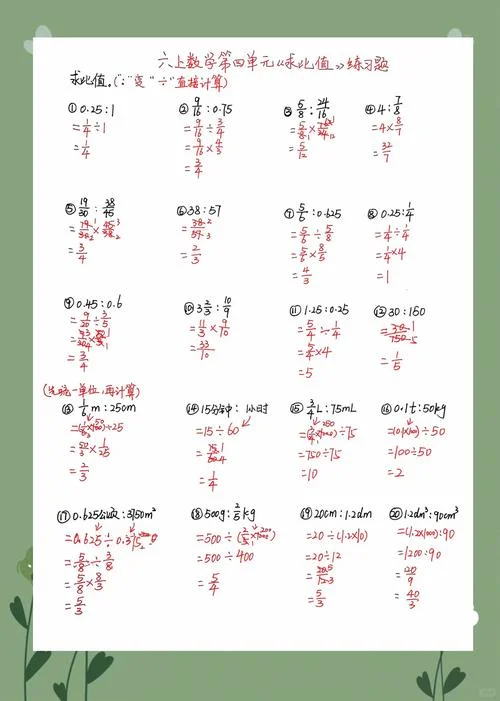 六上数学第四单元《求比值》练习题
求比值。(":"变"÷"直接计算)
① 0.25:1
= 1/4 ÷ 1
= 1/4
② 9/16 : 0.75
= 9/16 ÷ 3/4
= 9/16 × 4/3
= 3/4
③ 5/8 : 24/16
= 5/12
④ 4 : 7/8
= 4 × 8/7
= 32/7
⑤ 19/30 : 38/45
= 19/30 × 45/38
= 3/4
⑥ 38:57
= 38/57
= 2/3
⑦ 5/6 : 0.625
= 5/6 ÷ 5/8
= 5/6 × 8/5
= 4/3
⑧ 0.25 : 1/4
= 1/4 ÷ 1/4
= 1/4 × 4
= 1
⑨ 0.45:0.6
= 9/20 ÷ 3/5
= 3/4
⑩ 3 2/3 : 10/9
= 11/3 × 9/10
= 33/10
⑪ 1.25:0.25
= 5/4 ÷ 1/4
= 5/4 × 4
= 5
⑫ 30:150
= 30/150
= 1/5
(先统一单位,再计算)
⑬ 1/6 m : 250m
= 50/3 × 1/25
= 2/3
⑭ 15分钟: 1小时
= 15 ÷ 60
= 15/60
= 1/4
⑮ 3/4 L : 75mL
= (3/4 × 1000) ÷ 75
= 750 ÷ 75
= 10
⑯ 0.1t:50kg
÷ 50
= 100÷50
= 2
⑰ 0.625公顷:3750m²
= 0.625 ÷ 0.375
= 5/8 ÷ 3/8
= 5/8 × 8/3
= 5/3
⑱ 500g : 2/5 kg
= 500 ÷ (2/5 × 1000)
= 500 ÷ 400
= 5/4
⑲ 20cm:1.2dm
= 20÷(1.2×10)
= 20÷12
= 20/12
= 5/3
⑳ 1.2dm³:90cm³
= (1.2×1000):90
= 1200:90
= 120/9
= 40/3